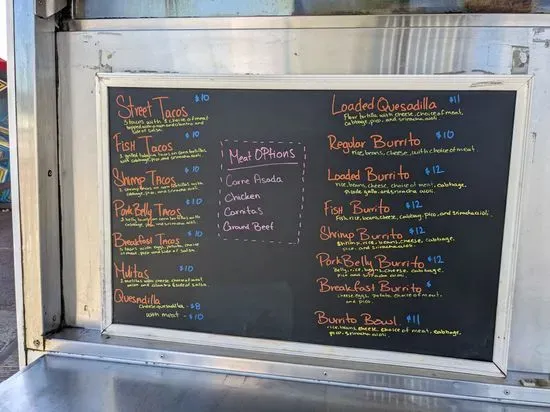 Street Tacos $10
3 tacos with choice of meat
topped with onion and cilantro and
side of salsa.
Fish Tacos $10
3 grilled tilapia tacos on corn tortillas with
cabbage, pico and sriracha aioli.
Shrimp Tacos $10
3 shrimp tacos on corn tortillas with
cabbage, pico, and sriracha aioli.
Pork Belly Tacos $10
3 belly tacos on corn tortillas with
cabbage, pico and sriracha aioli.
Breakfast Tacos $10
3 tacos with eggs, potato, choice
of meat, pico and side of salsa.
Mulitas $10
2 tortillas with cheese, choice of meat,
onion and cilantro & side of salsa.
Quesadilla
cheese quesadilla - $8
with meat - $10
Meat Options
Carne Asada
Chicken
Carnitas
Ground Beef
Loaded Quesadilla $11
Flour tortilla with cheese, choice of meat,
cabbage, pico, and sriracha aioli.
Regular Burrito $10
rice, beans, cheese, with choice of meat.
Loaded Burrito $12
rice, beans, cheese, choice of meat, cabbage,
pico de gallo, and sriracha aioli.
Fish Burrito $12
Fish, rice, beans, cheese, cabbage, pico, and sriracha aioli.
Shrimp Burrito $12
Shrimp, rice, beans, cheese, cabbage,
pico, and sriracha aioli.
Pork Belly Burrito $12
Belly, rice, beans, cheese, cabbage,
pico and sriracha aioli.
Breakfast Burrito $
cheese, eggs, potato, choice of meat,
and pico.
Burrito Bowl $11
rice, beans, cheese, choice of meat, cabbage,
pico, sriracha aioli.